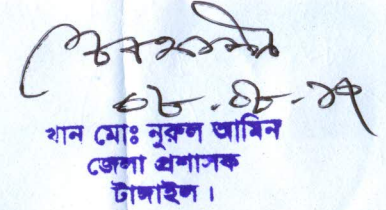 ০৮-০৮-১৭
খান মোঃ নুরুল আমিন
জেলা প্রশাসক
টাঙ্গাইল।